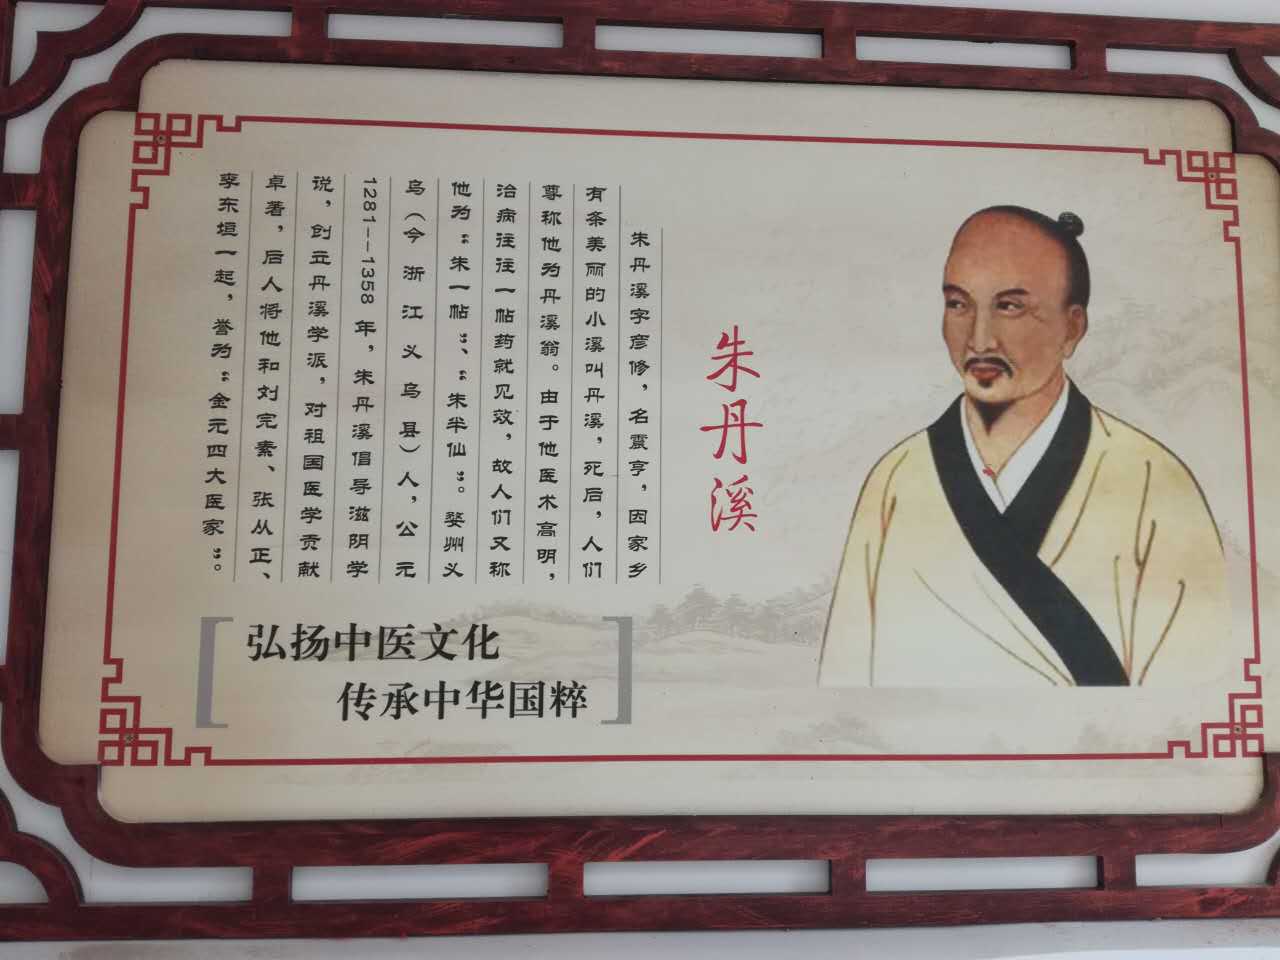 朱丹溪
朱丹溪字彦修，名震亨，因家乡
有条美丽的小溪叫丹溪，死后，人们
尊称他为丹溪翁。由于他医术高明，
治病往往一帖药就见效，故人们又称
他为“朱一帖”、“朱半仙”。婺州义
乌（今浙江义乌县）人，公元
1281--1358年，朱丹溪倡导滋阴学
说，创立丹溪学派，对祖国医学贡献
卓著，后人将他和刘完素、张从正、
李东垣一起，誉为“金元四大医家”。
弘扬中医文化
传承中华国粹